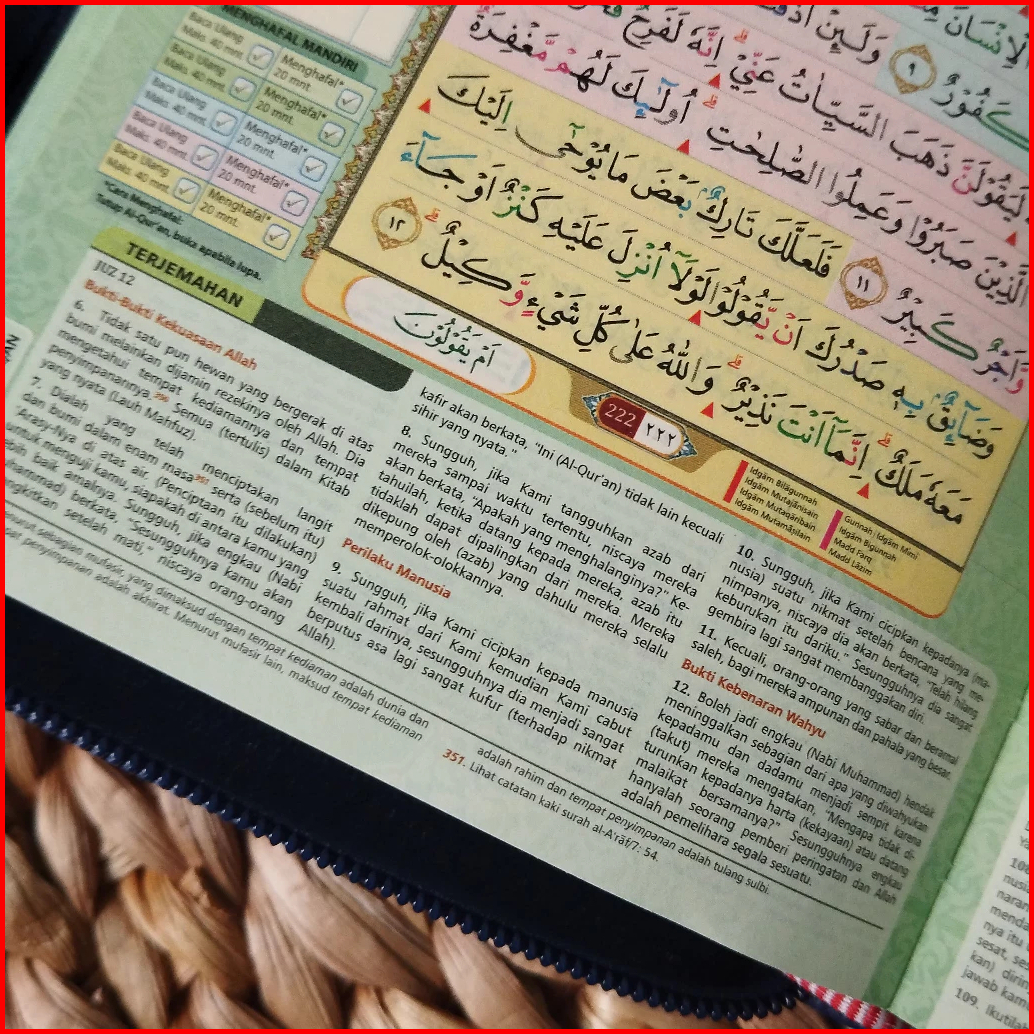 MENGHAFAL MANDIRI
Baca Ulang
Maks. 40 mnt.
Menghafal*
20 mnt.
Baca Ulang
Maks. 40 mnt.
Menghafal*
20 mnt.
Baca Ulang
Maks. 40 mnt.
Menghafal*
20 mnt.
Baca Ulang
Maks. 40 mnt.
Menghafal*
20 mnt.
Baca Ulang
Maks. 40 mnt.
Menghafal*
20 mnt.
*Cara Menghafal:
Tutup Al-Qur'an, buka apabila lupa.
لَيَقُوْلَنَّ ذَهَبَ السَّيِّاٰتُ عَنِّيْ ۗاِنَّهٗ لَفَرِحٌ
الَّذِيْنَ صَبَرُوْا وَعَمِلُوا الصّٰلِحٰتِۗ اُولٰۤىِٕكَ لَهُمْ مَّغْفِرَةٌ
وَّاَجْرٌ كَبِيْرٌ ١١ فَلَعَلَّكَ تَارِكٌۢ بَعْضَ مَا يُوْحٰٓى اِلَيْكَ
وَضَاۤىِٕقٌۢ بِهٖ صَدْرُكَ اَنْ يَّقُوْلُوْا لَوْلَآ اُنْزِلَ عَلَيْهِ كَنْزٌ اَوْ جَاۤءَ
مَعَهٗ مَلَكٌ ۗاِنَّمَآ اَنْتَ نَذِيْرٌ ۗ وَاللّٰهُ عَلٰى كُلِّ شَيْءٍ وَّكِيْلٌ ۗ ١٢
اَمْ يَقُوْلُوْنَ
222 ٢٢٢
Idgām Bilāgunnah
Idgām Mutajānisain
Idgām Mutaqāribain
Idgām Mutamāṡilain
Gunnah | Idgām Mimi
Idgām Bigunnah
Madd Farq
Madd Lāzim
TERJEMAHAN
JUZ 12
Bukti-Bukti Kekuasaan Allah
6. Tidak satu pun hewan yang bergerak di atas
bumi melainkan dijamin rezekinya oleh Allah. Dia
mengetahui tempat kediamannya dan tempat
penyimpanannya.350 Semua (tertulis) dalam Kitab
yang nyata (Lauh Mahfuz).
7. Dialah yang telah menciptakan langit
dan bumi dalam enam masa351 serta (sebelum itu)
'Arasy-Nya di atas air. (Penciptaan itu dilakukan)
untuk menguji kamu, siapakah di antara kamu yang
lebih baik amalnya. Sungguh, jika engkau (Nabi
berkata, "Sesungguhnya kamu akan
setelah mati," niscaya orang-orang
kafir akan berkata, "Ini (Al-Qur'an) tidak lain kecuali
sihir yang nyata."
8. Sungguh, jika Kami tangguhkan azab dari
mereka sampai waktu tertentu, niscaya mereka
akan berkata, "Apakah yang menghalanginya?" Ke-
tahuilah, ketika datang kepada mereka, azab itu
tidaklah dapat dipalingkan dari mereka. Mereka
dikepung oleh (azab) yang dahulu mereka selalu
memperolok-olokkannya.
Perilaku Manusia
9. Sungguh, jika Kami cicipkan kepada manusia
suatu rahmat dari Kami kemudian Kami cabut
kembali darinya, sesungguhnya dia menjadi sangat
berputus asa lagi sangat kufur (terhadap nikmat
Allah).
10. Sungguh, jika Kami cicipkan kepadanya (ma-
nusia) suatu nikmat setelah bencana yang me-
nimpanya, niscaya dia akan berkata, "Telah hilang
keburukan itu dariku." Sesungguhnya dia sangat
gembira lagi sangat membanggakan diri.
11. Kecuali, orang-orang yang sabar dan beramal
saleh, bagi mereka ampunan dan pahala yang besar.
Bukti Kebenaran Wahyu
12. Boleh jadi engkau (Nabi Muhammad) hendak
meninggalkan sebagian dari apa yang diwahyukan
kepadamu dan dadamu menjadi sempit karena
(takut) mereka mengatakan, "Mengapa tidak di-
turunkan kepadanya harta (kekayaan) atau datang
malaikat bersamanya?" Sesungguhnya engkau
hanyalah seorang pemberi peringatan dan Allah
adalah pemelihara segala sesuatu.
sebagian mufasir, yang dimaksud dengan tempat kediaman adalah dunia dan
penyimpanan adalah akhirat. Menurut mufasir lain, maksud tempat kediaman
adalah rahim dan tempat penyimpanan adalah tulang sulbi.
351. Lihat catatan kaki surah al-A'rāf/7: 54.
109. Ikutilah